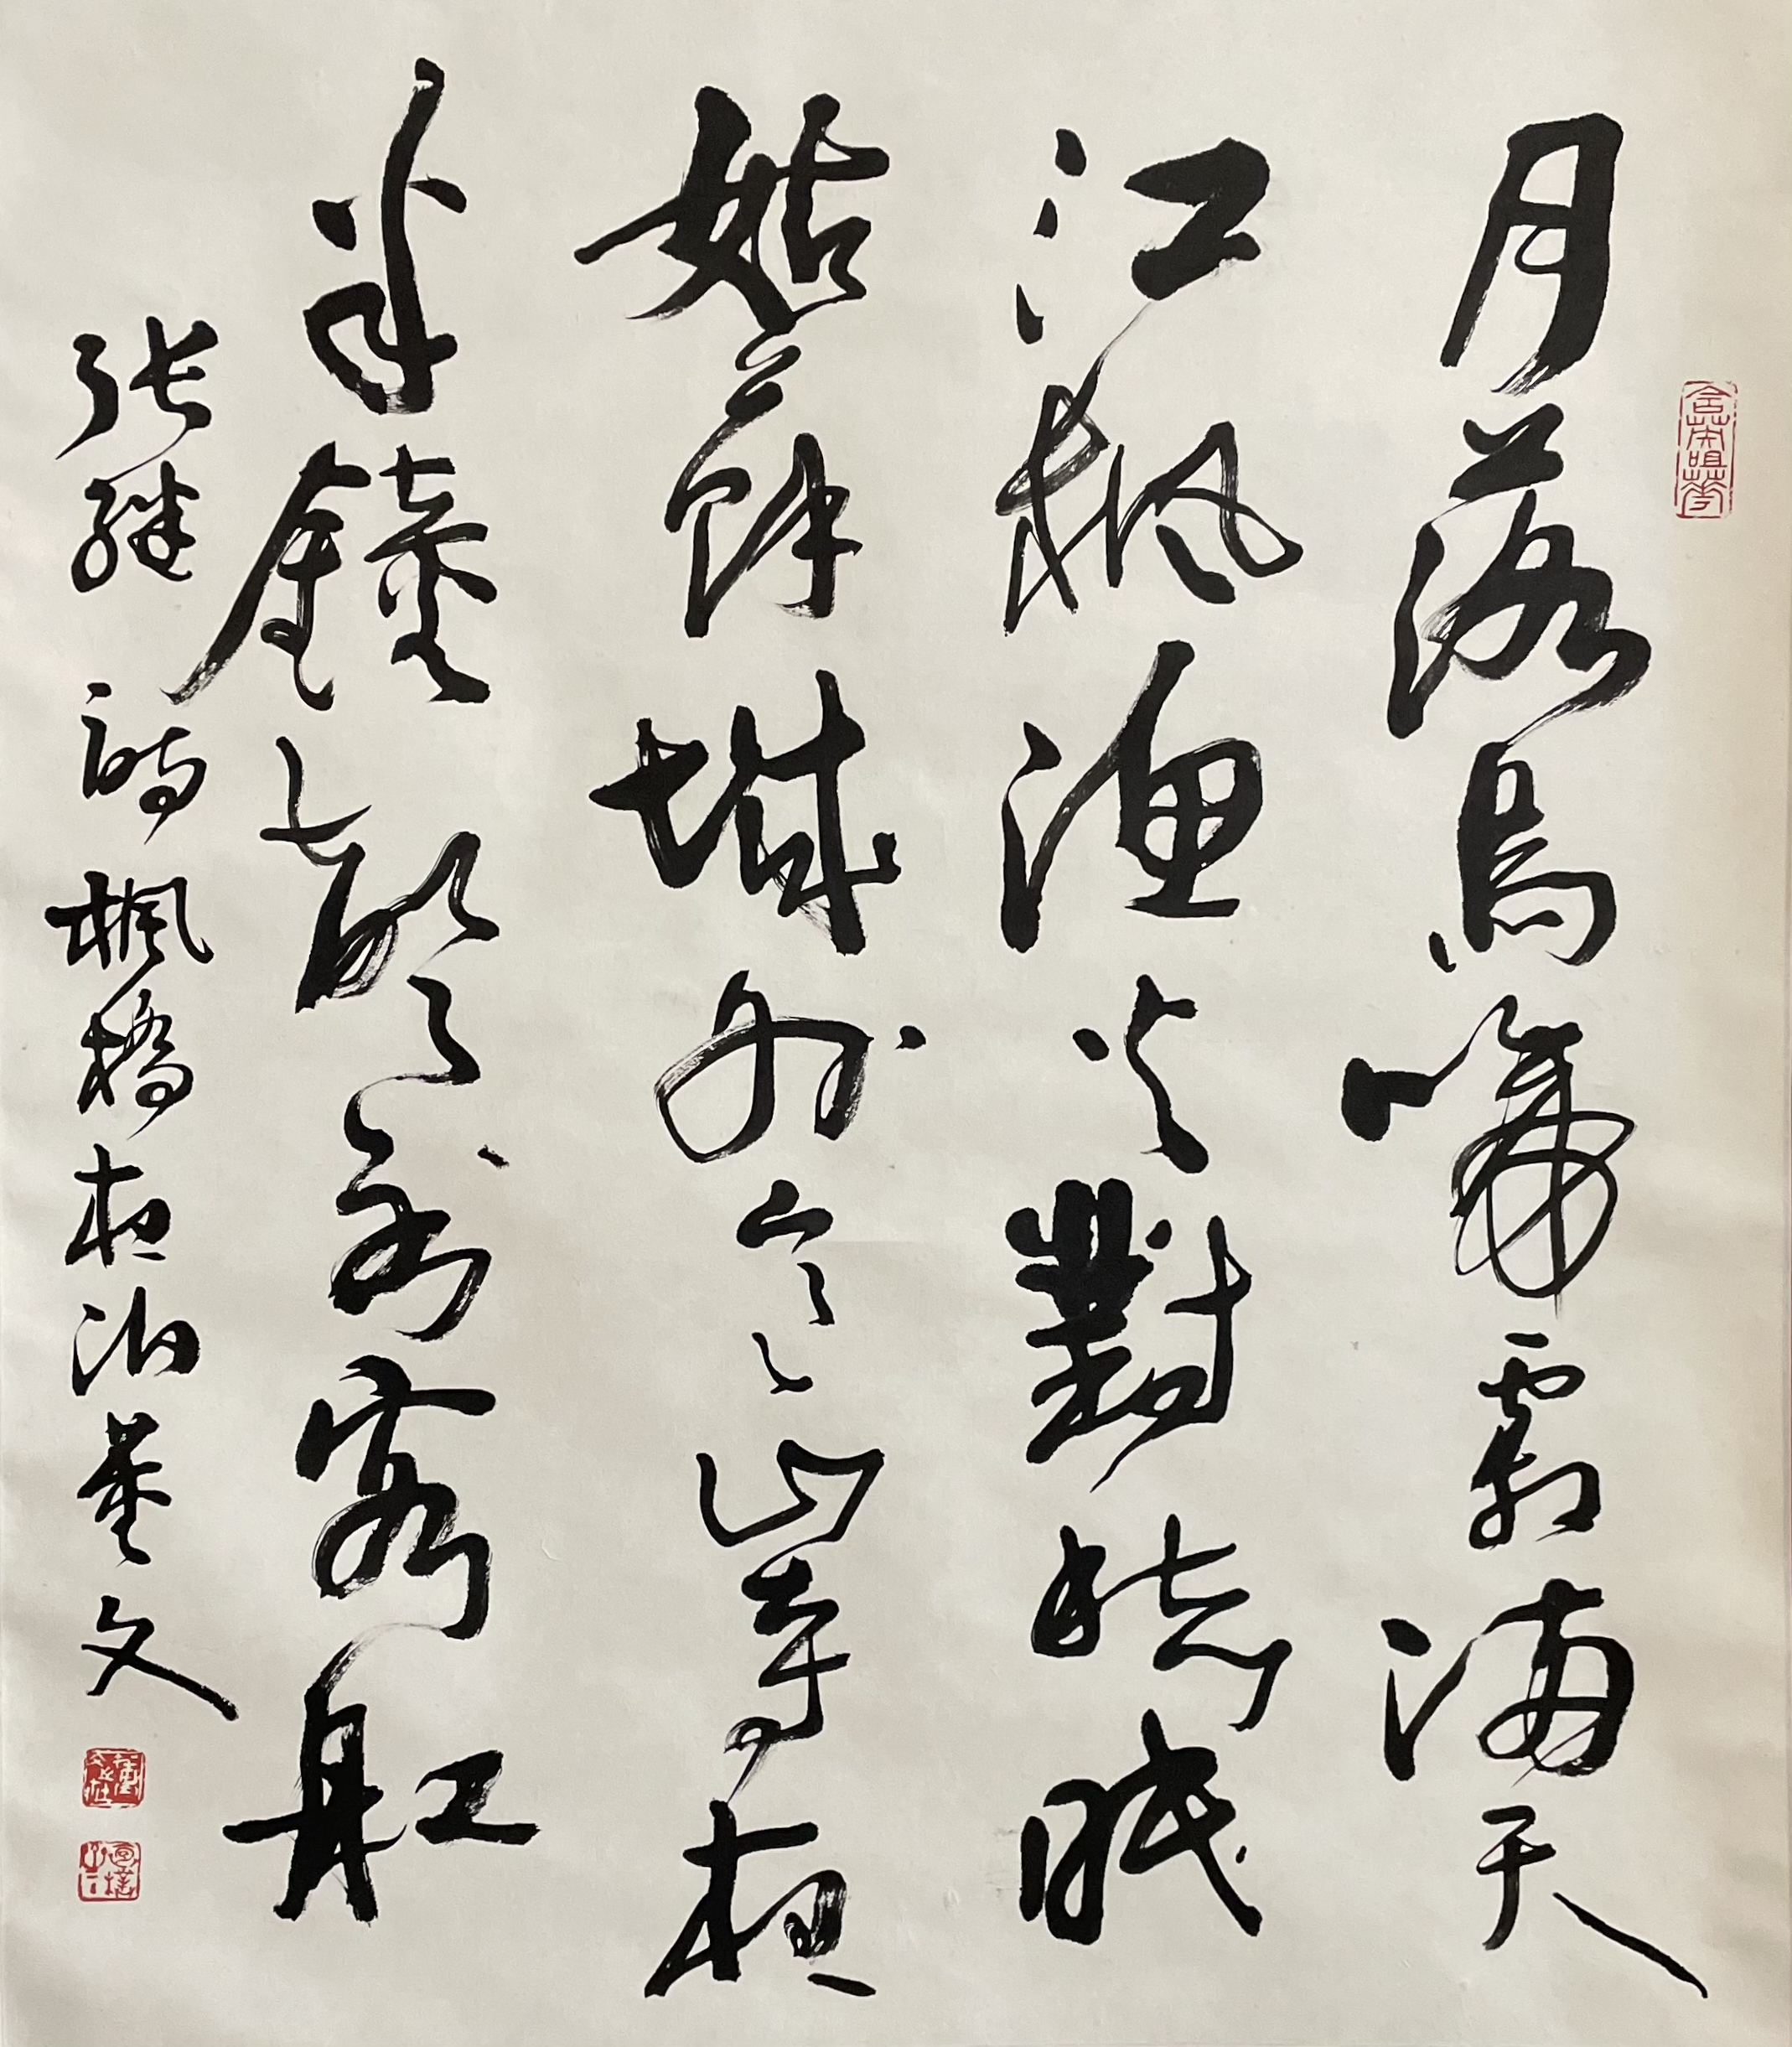 月落烏啼霜滿天
江楓漁火對愁眠
姑蘇城外寒山寺夜
半鐘聲到客船
張繼詩楓橋夜泊董文